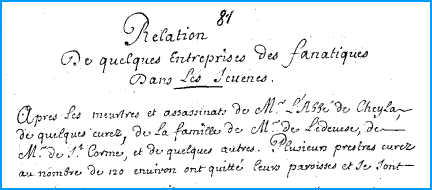 81
Relation
De quelques Entreprises des fanatiques
Dans Les Sevenes.
Apres les meurtres et assassinats de Mr. L'Abbé de Cheyla,
de quelques curez, de la famille de Mr. de Ledeuse, de
Mr. de St. Corme, et de quelques autres. Plusieurs prestres curez
au nombre de 120 environ ont quitté leurs paroisses et se sont